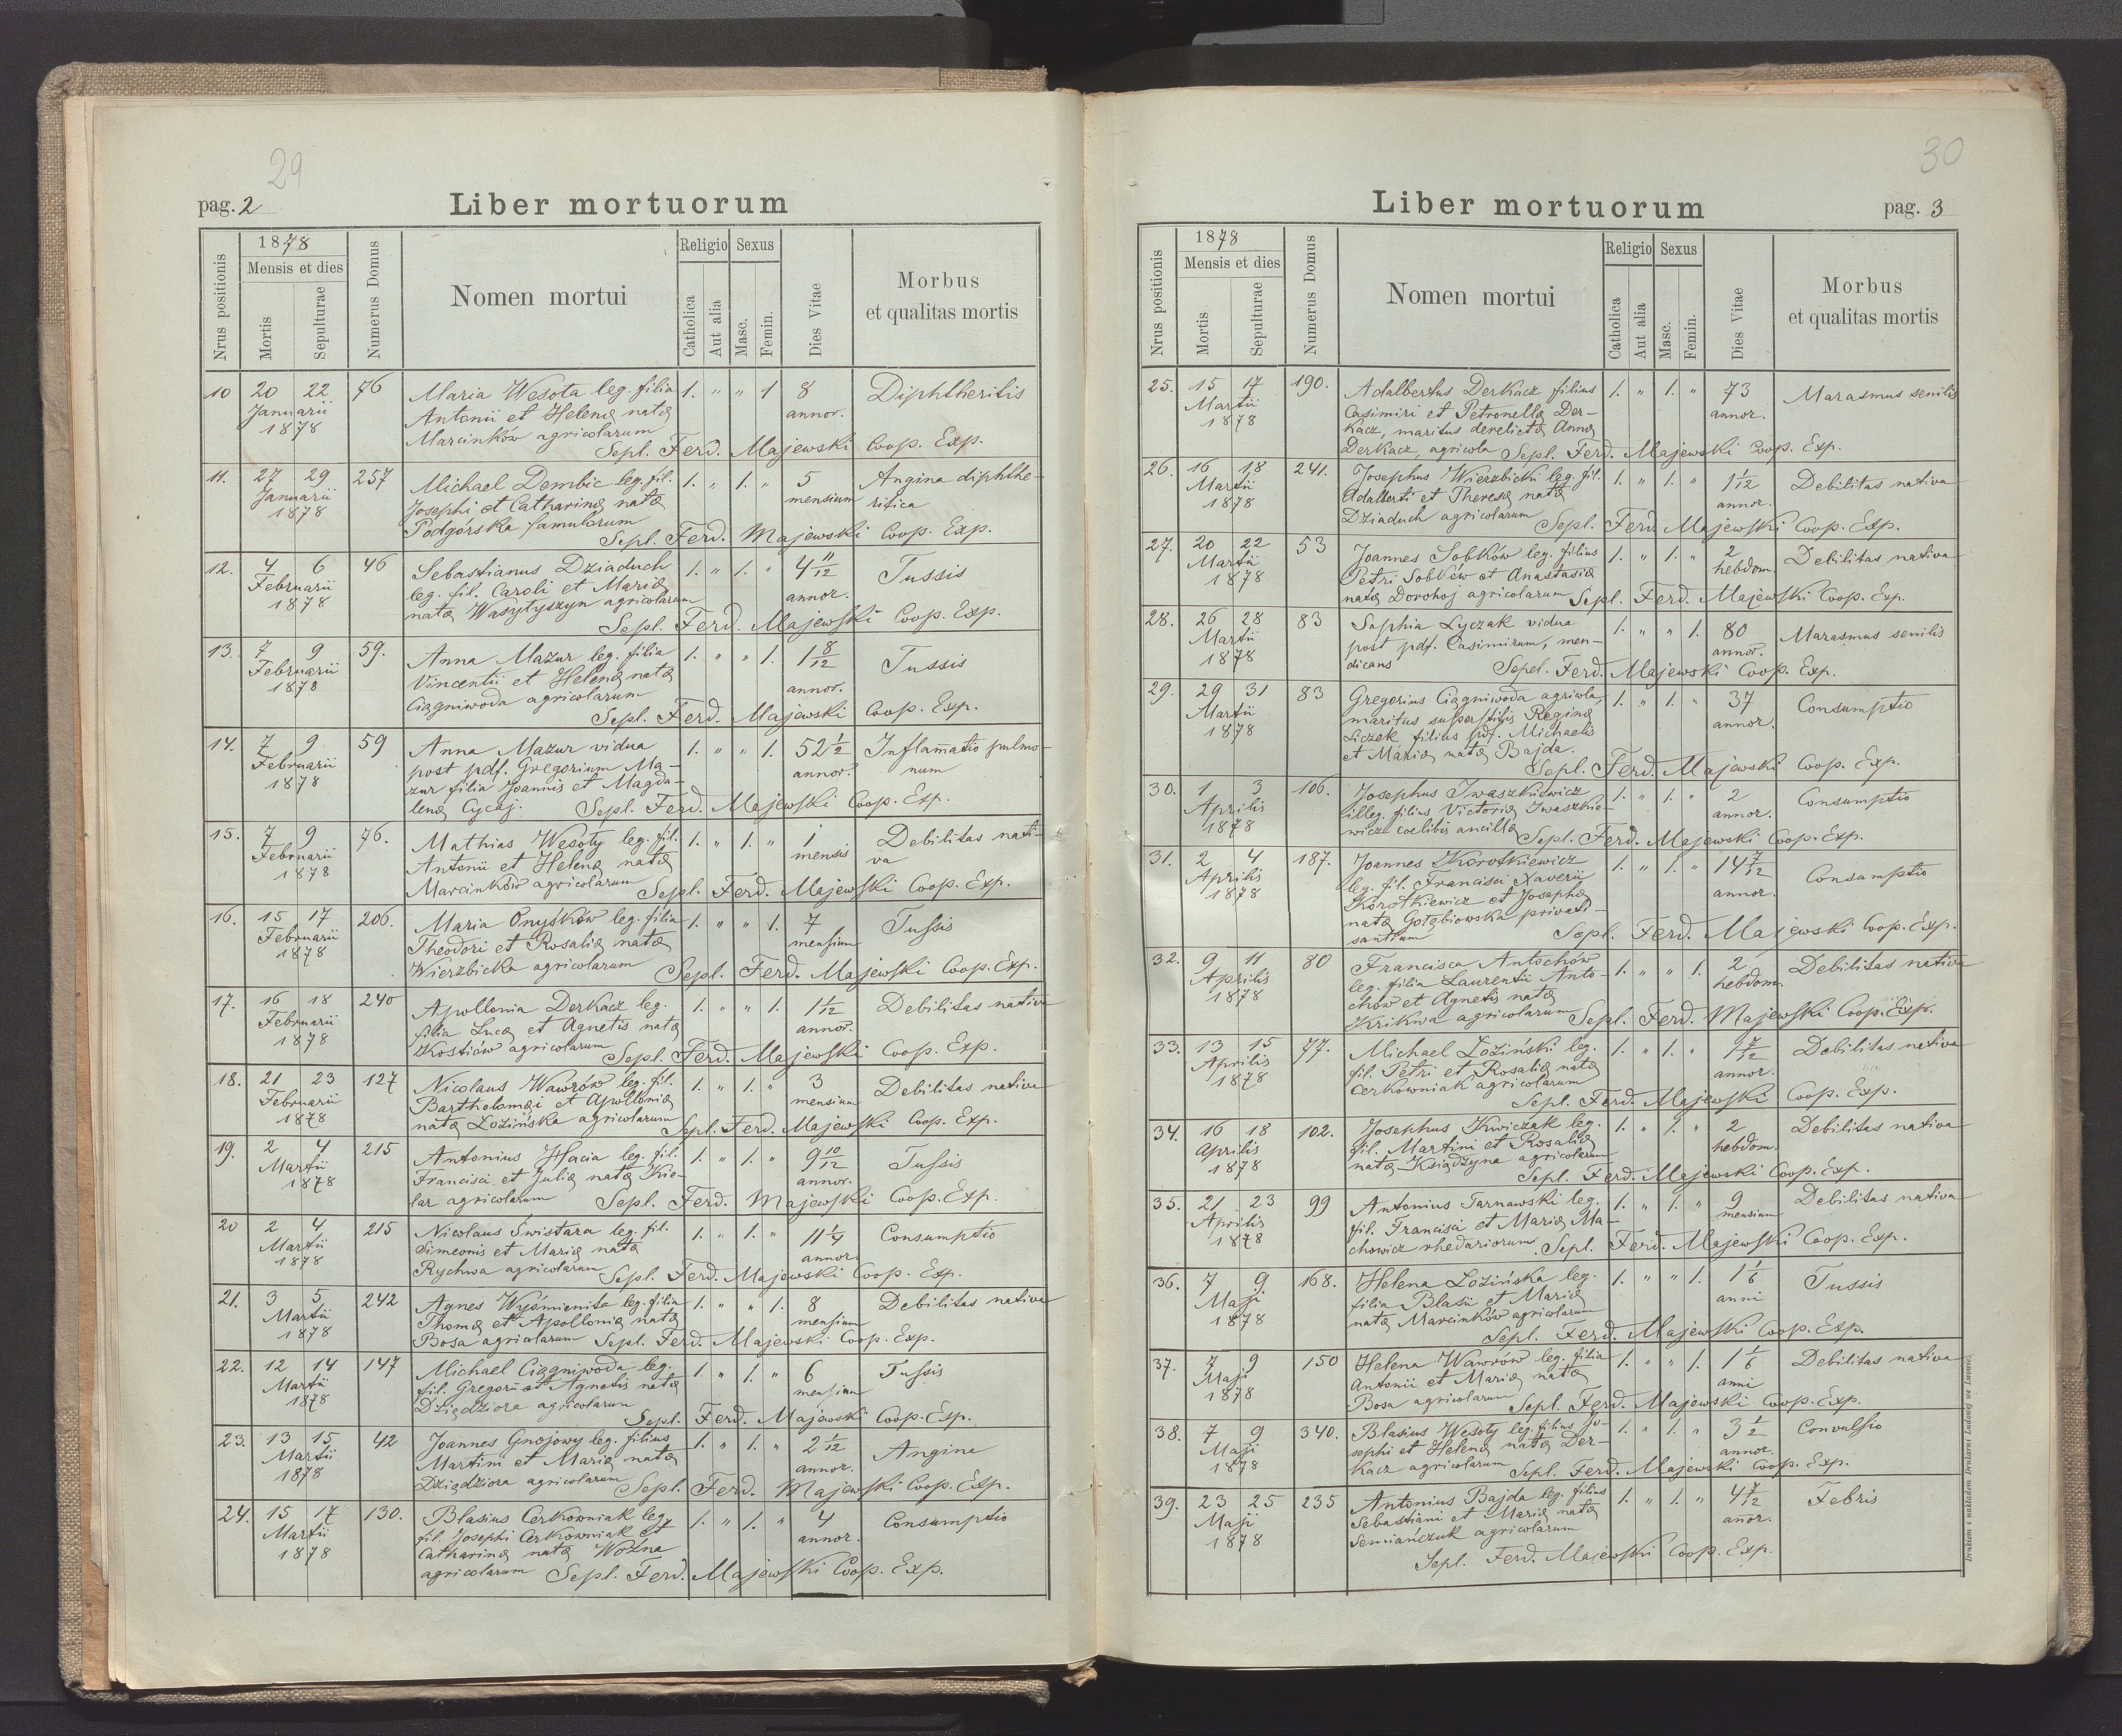 29
pag. 2
Liber mortuorum
Nrus positionis
1878
Mensis et dies
Mortis
Sepulturae
Numerus Domus
Nomen mortui
Religio
Catholica
Aut alia
Sexus
Masc.
Femin.
Dies Vitae
Morbus
et qualitas mortis
10 20 22 76 Maria Wesoła leg. filia 1. " " 1 8 Diphtheritis
Januarii Antonii et Helenæ natæ annor.
1878 Marcinków agricolarum
Sepl. Ferd. Majewski Coop. Exp.
11. 27 29 257 Michael Dembic leg. fil. 1. " 1. " 5 Angina diphthe-
Januarii Josephi et Catharinæ natæ mensium ritica
1878 Podgórska famulorum
Sepl. Ferd. Majewski Coop. Exp.
12. 4 6 46 Sebastianus Dziaduch 1. " 1. " 4 11/12 Tussis
Februarii leg. fil. Caroli et Mariæ annor.
1878 natæ Wasyłyszyn agricolarum
Sepl. Ferd. Majewski Coop. Exp.
13. 7 9 59. Anna Mazur leg. filia 1. " " 1. 1 8/12 Tussis
Februarii Vincentii et Helenæ natæ annor.
1878 Ciągniwoda agricolarum
Sepl. Ferd. Majewski Coop. Exp.
14. 7 9 59 Anna Mazur vidua 1. " " 1. 52 1/2 Inflam̄atio pulmo-
Februarii post pdf. Gregorium Ma- annor. num
1878 zur filia Joannis et Magda-
lenæ Cycaj. Sepl. Ferd. Majewski Coop. Exp.
15. 7 9 76. Mathias Wesoły leg. fil. 1. " 1. " 1 Debilitas nati-
Februarii Antonii et Helenæ natæ mensis va
1878 Marcinków agricolarum
Sepl. Ferd. Majewski Coop. Exp.
16. 15 17 206. Maria Onyśków leg. filia 1. " " 1. 7 Tussis
Februarii Theodori et Rosaliæ natæ mensium
1878 Wierzbicka agricolarum
Sepl. Ferd. Majewski Coop. Exp.
17. 16 18 240 Apollonia Derkacz leg. 1. " " 1. 1 1/12 Debilitas nativa
Februarii filia Lucæ et Agnetis natæ annor.
1878 Kostiów agricolarum
Sepl. Ferd. Majewski Coop. Exp.
18. 21 23 127 Nicolaus Wawrów leg. fil. 1. " 1. " 3 Debilitas nativa
Februarii Bartholomæi et Apolloniæ mensium
1878 natæ Łozińska agricolarum Sepl. Ferd. Majewski Coop. Exp.
19. 2 4 215 Antonius Hacia leg. fil. 1. " 1. " 9 10/12 Tussis
Martii Francisci et Juliæ natæ Kie- annor.
1878 lar agricolarum Sepl. Ferd. Majewski Coop. Exp.
20 2 4 215 Nicolaus Swistara leg. fil. 1. " 1. " 11 1/4 Consumptio
Martii Simeonis et Mariæ natæ annor.
1878 Rychwa agricolarum Sepl. Ferd. Majewski Coop. Exp.
21. 3 5 242 Agnes Wyśmienita leg. filia 1. " " 1. 8 Debilitas nativa
Martii Thomæ et Apolloniæ natæ mensium
1878 Bosa agricolarum Sepl. Ferd. Majewski Coop. Exp.
22. 12 14 147 Michael Ciągniwoda leg. 1. " 1. " 6 Tussis
Martii fil. Gregorii et Agnetis natæ mensium
1878 Dziędziora agricolarum
Sepl. Ferd. Majewski Coop. Exp.
23. 13 15 42 Joannes Gnojowy leg. filius 1. " 1. " 2 1/12 Angina
Martii Martini et Mariæ natæ annor.
1878 Dziędziora agricolarum Sepl. Ferd. Majewski Coop. Exp.
24. 15 17 130. Blasius Cerkowniak leg. 1. " 1. " 4 Consumptio
Martii fil. Josephi Cerkowniak et annor.
1878 Catharinæ natæ Woźna
agricolarum Sepl. Ferd. Majewski Coop. Exp.
30
Liber mortuorum
pag. 3
Nrus positionis
1878
Mensis et dies
Mortis
Sepulturae
Numerus Domus
Nomen mortui
Religio
Catholica
Aut alia
Sexus
Masc.
Femin.
Dies Vitae
Morbus
et qualitas mortis
25. 15 17 190. Adalbertus Derkacz filius 1. " 1. " 73 Marasmus senilis
Martii Casimiri et Petronellæ Der- annor.
1878 kacz, maritus derelictæ Annæ
Derkacz, agricola Sepl. Ferd. Majewski Coop. Exp.
26. 16 18 241. Josephus Wierzbicki leg. fil. 1. " 1. " 1 1/12 Debilitas nativa
Martii Adalberti et Theresæ natæ annor.
1878 Dziaduch agricolarum Sepl. Ferd. Majewski Coop. Exp.
27. 20 22 53 Joannes Sobków leg. filius 1. " 1. " 2 Debilitas nativa
Martii Petri Sobków et Anastasiæ hebdom.
1878 natæ Dorohoj agricolarum Sepl. Ferd. Majewski Coop. Exp.
28. 26 28 83 Sophia Łyczak vidua 1. " " 1. 80 Marasmus senilis
Martii post pdf. Casimirum, men- annor.
1878 dicans Sepel. Ferd. Majewski Coop. Exp.
29. 29 31 83 Gregorius Ciągniwoda agricola, 1. " 1. " 37 Consumptio
Martii maritus superstitis Reginæ annor.
1878 Liczek filius pdf. Michaelis
et Mariæ natæ Bajda.
Sepl. Ferd. Majewski Coop. Exp.
30. 1 3 106. Josephus Iwaszkiewicz 1. " 1. " 2 Consumptio
Aprilis illeg. filius Victoriæ Iwaszkie- annor.
1878 wicz coelibis ancillæ Sepl. Ferd. Majewski Coop. Exp.
31. 2 4 187. Joannes Korotkiewicz 1. " 1. " 14 7/12 Consumptio
Aprilis leg. fil. Francisci Xaverii annor.
1878 Korotkiewicz et Josephæ
natæ Gołębiowska privati-
santium Sepl. Ferd. Majewski Coop. Exp.
32. 9 11 80 Francisca Antochów 1. " " 1. 2 Debilitas nativa
Aprilis leg. filia Laurentii Anto- hebdom.
1878 chów et Agnetis natæ
Krikwa agricolarum Sepl. Ferd. Majewski Coop. Exp.
33. 13 15 77. Michael Łoziński leg. 1. " 1. " 1 7/12 Debilitas nativa
Aprilis fil. Petri et Rosaliæ natæ annor.
1878 Cerkowniak agricolarum
Sepl. Ferd. Majewski Coop. Exp.
34. 16 18 102. Josephus Kwiczak leg. 1. " 1. " 2 Debilitas nativa
Aprilis fil. Martini et Rosaliæ hebdom.
1878 natæ Księdżyna agricolarum
Sepl. Ferd. Majewski Coop. Exp.
35. 21 23 99 Antonius Tarnawski leg. 1. " 1. " 9 Debilitas nativa
Aprilis fil. Francisci et Mariæ Ma- mensium
1878 chowicz rhedariorum. Sepl. Ferd. Majewski Coop. Exp.
36. 7 9 168. Helena Łozińska leg. 1. " " 1. 1 1/6 Tussis
Maji filia Blasii et Mariæ anni
1878 natæ Marcinków agricolarum
Sepl. Ferd. Majewski Coop. Exp.
37. 7 9 150 Helena Wawrów leg. filia 1. " " 1. 1 1/6 Debilitas nativa
Maji Antonii et Mariæ natæ anni
1878 Bosa agricolarum Sepl. Ferd. Majewski Coop. Exp.
38. 7 9 340. Blasius Wesoły leg. filius Jo- 1. " 1. " 3 1/2 Convulsio
Maji sephi et Helenæ natæ Der- annor.
1878 kacz agricolarum Sepl. Ferd. Majewski Coop. Exp.
39. 23 25 235 Antonius Bajda leg. filius 1. " 1. " 4 7/12 Febris
Maji Sebastiani et Mariæ natæ annor.
1878 Semiańczuk agricolarum
Sepl. Ferd. Majewski Coop. Exp.
Drukiem i nakładem Drukarni Ludowej we Lwowie.